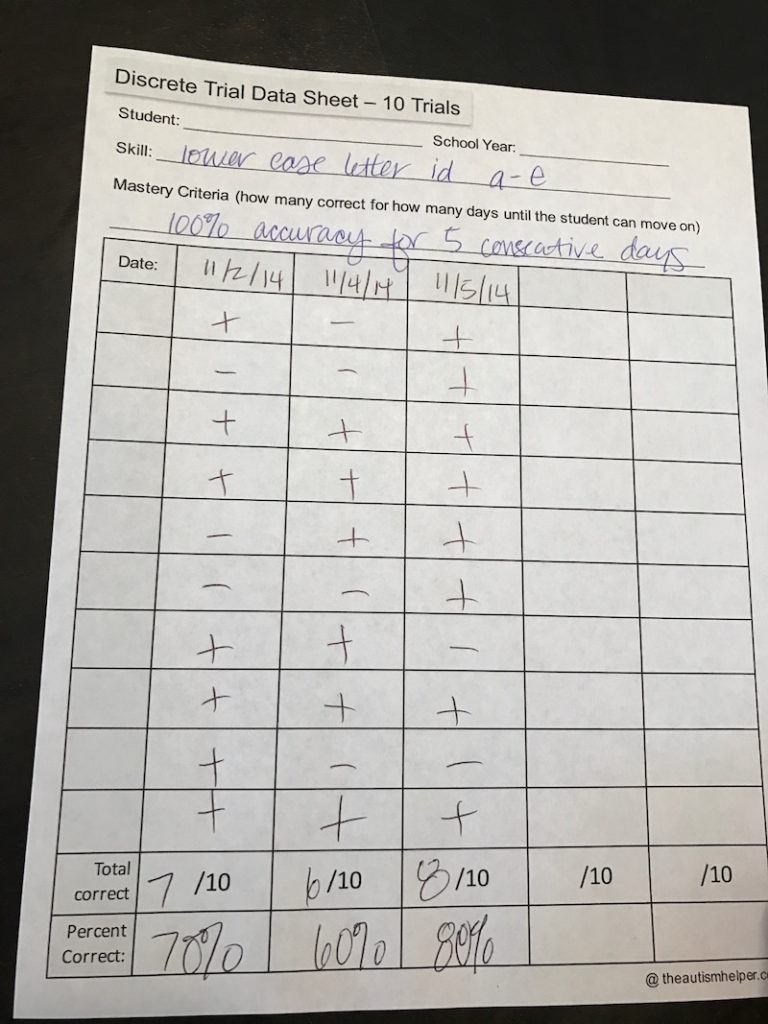 Discrete Trial Data Sheet – 10 Trials
Student:
School Year:
Skill: lower case letter id a-e
Mastery Criteria (how many correct for how many days until the student can move on)
100% accuracy for 5 conscative days
Date: 11/2/14 11/4/14 11/5/14
+ − +
− − +
+ + +
+ + +
− + +
− − +
+ + −
+ + +
+ − −
+ + +
Total correct 7 /10 6 /10 8 /10 /10 /10
Percent Correct: 70% 60% 80%
@ theautismhelper.c